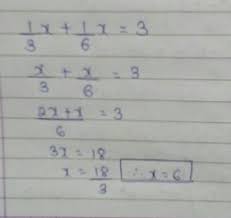 1/3 x + 1/6 x = 3
x/3 + x/6 = 3
2x+x/6 = 3
3x = 18
x = 18/3 ∴ x = 6